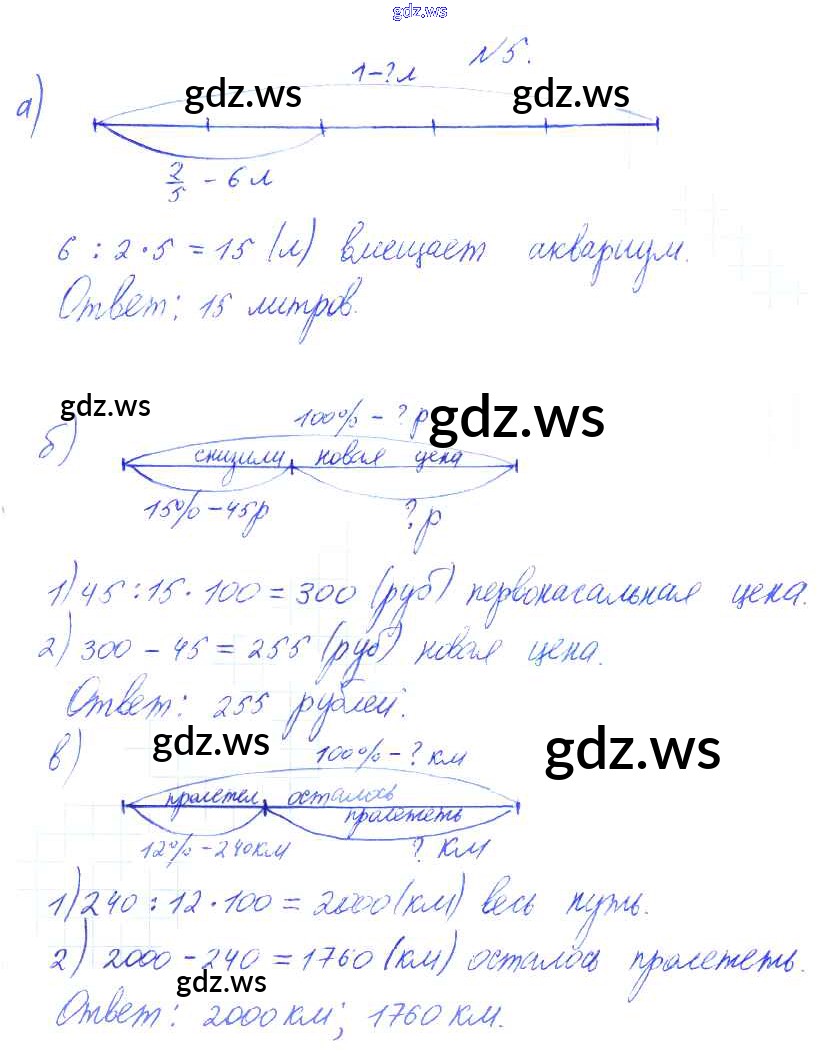 gdz.ws
№5.
1-?л
gdz.ws gdz.ws
а)
2/5 - 6 л
6 : 2 · 5 = 15 (л) вмещает аквариум.
Ответ: 15 литров.
gdz.ws
100% - ? р
gdz.ws
б)
снизили новая цена
15% - 45р ? р
1) 45 : 15 · 100 = 300 (руб) первоначальная цена.
2) 300 - 45 = 255 (руб) новая цена.
Ответ: 255 рублей.
в)
gdz.ws
100% - ? км
gdz.ws
пролетел осталось
пролететь
12% - 240км ? км
1) 240 : 12 · 100 = 2000 (км) весь путь.
2) 2000 - 240 = 1760 (км) осталось пролететь.
gdz.ws
Ответ: 2000 км; 1760 км.